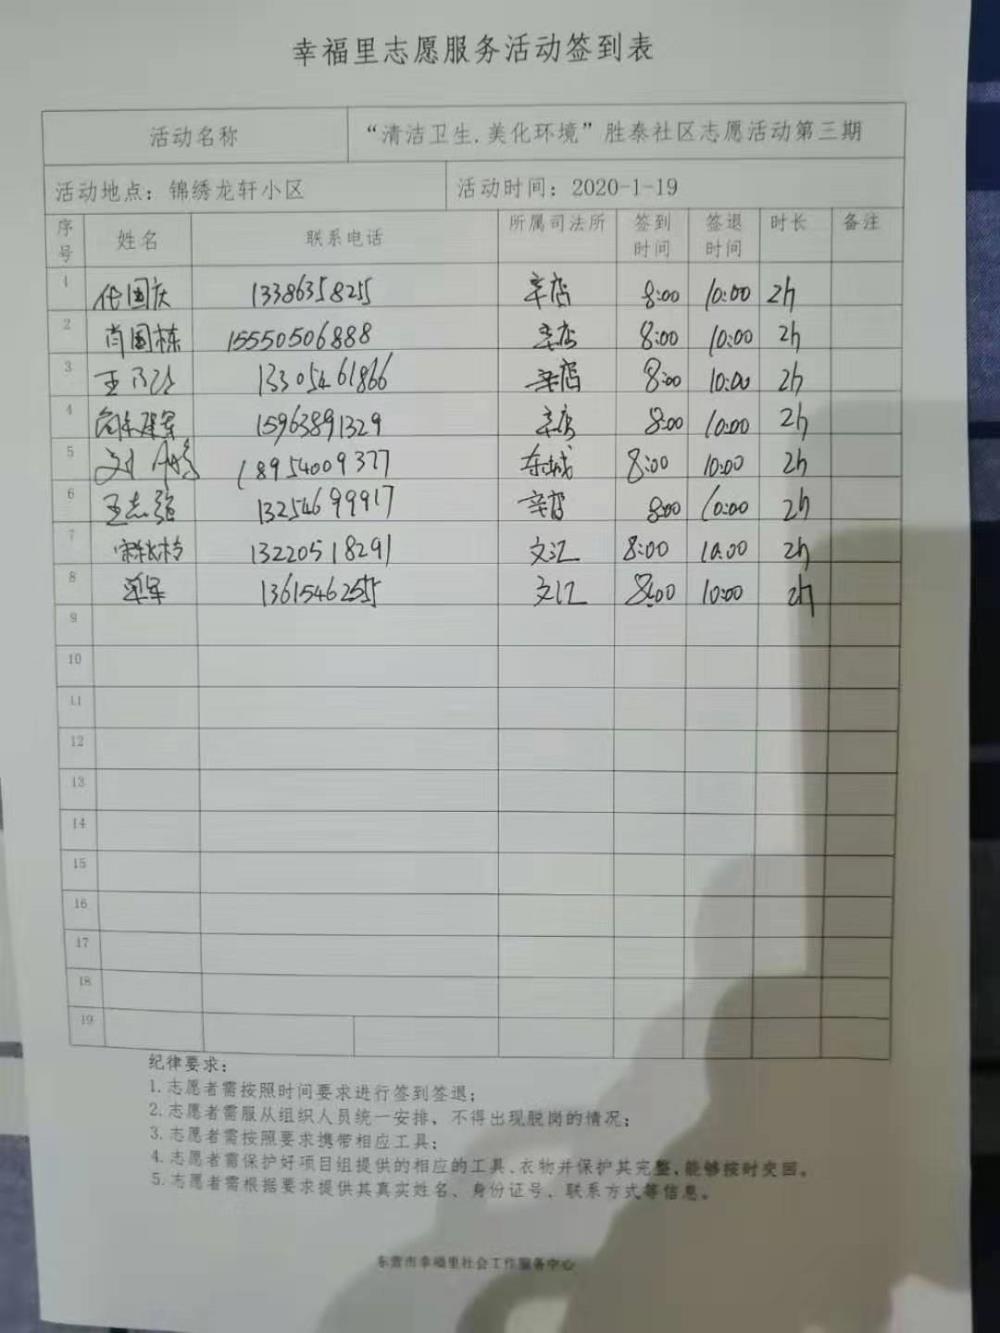 幸福里志愿服务活动签到表
活动名称 “清洁卫生.美化环境”胜泰社区志愿活动第三期
活动地点：锦绣龙轩小区 活动时间：2020-1-19
序号 姓名 联系电话 所属司法所 签到时间 签退时间 时长 备注
1 任国庆 13386358255 辛店 8:00 10:00 2h
2 肖国栋 15550506888 辛店 8:00 10:00 2h
3 王 13305461866 辛店 8:00 10:00 2h
4 建军 15963891329 辛店 8:00 10:00 2h
5 刘 18954009377 东城 8:00 10:00 2h
6 王志强 13254699917 辛店 8:00 10:00 2h
7 13220518291 文汇 8:00 10:00 2h
8 军 13615462555 文汇 8:00 10:00 2h
9
10
11
12
13
14
15
16
17
18
19
纪律要求：
1.志愿者需按照时间要求进行签到签退；
2.志愿者需服从组织人员统一安排，不得出现脱岗的情况；
3.志愿者需按照要求携带相应工具；
4.志愿者需保护好项目组提供的相应的工具、衣物并保护其完整，能够按时交回。
5.志愿者需根据要求提供其真实姓名、身份证号、联系方式等信息。
东营市幸福里社会工作服务中心